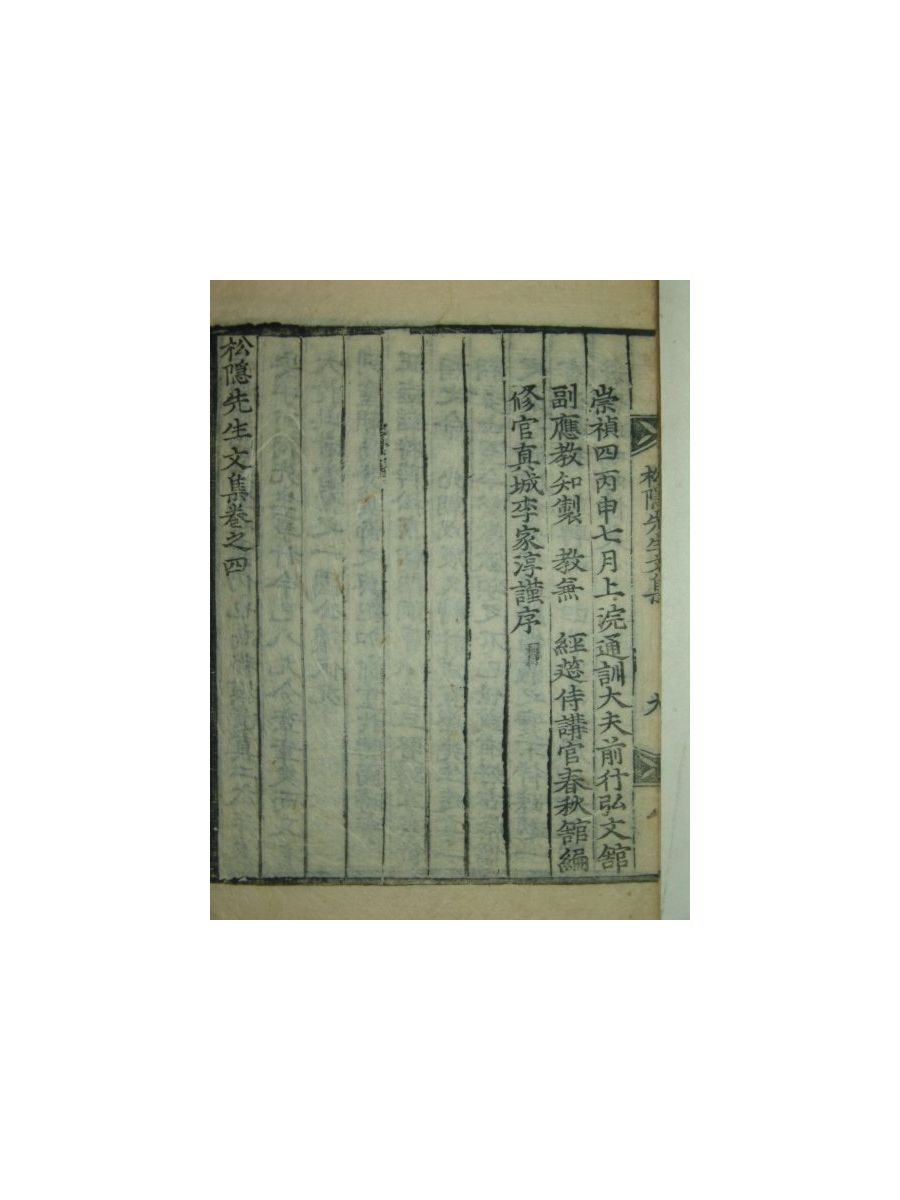 松隱先生文集
九
崇禎四丙申七月上浣通訓大夫前行弘文舘
副應敎知製 敎無 經莚侍講官春秋舘編
修官真城李家淳謹序
松隱先生文集卷之四